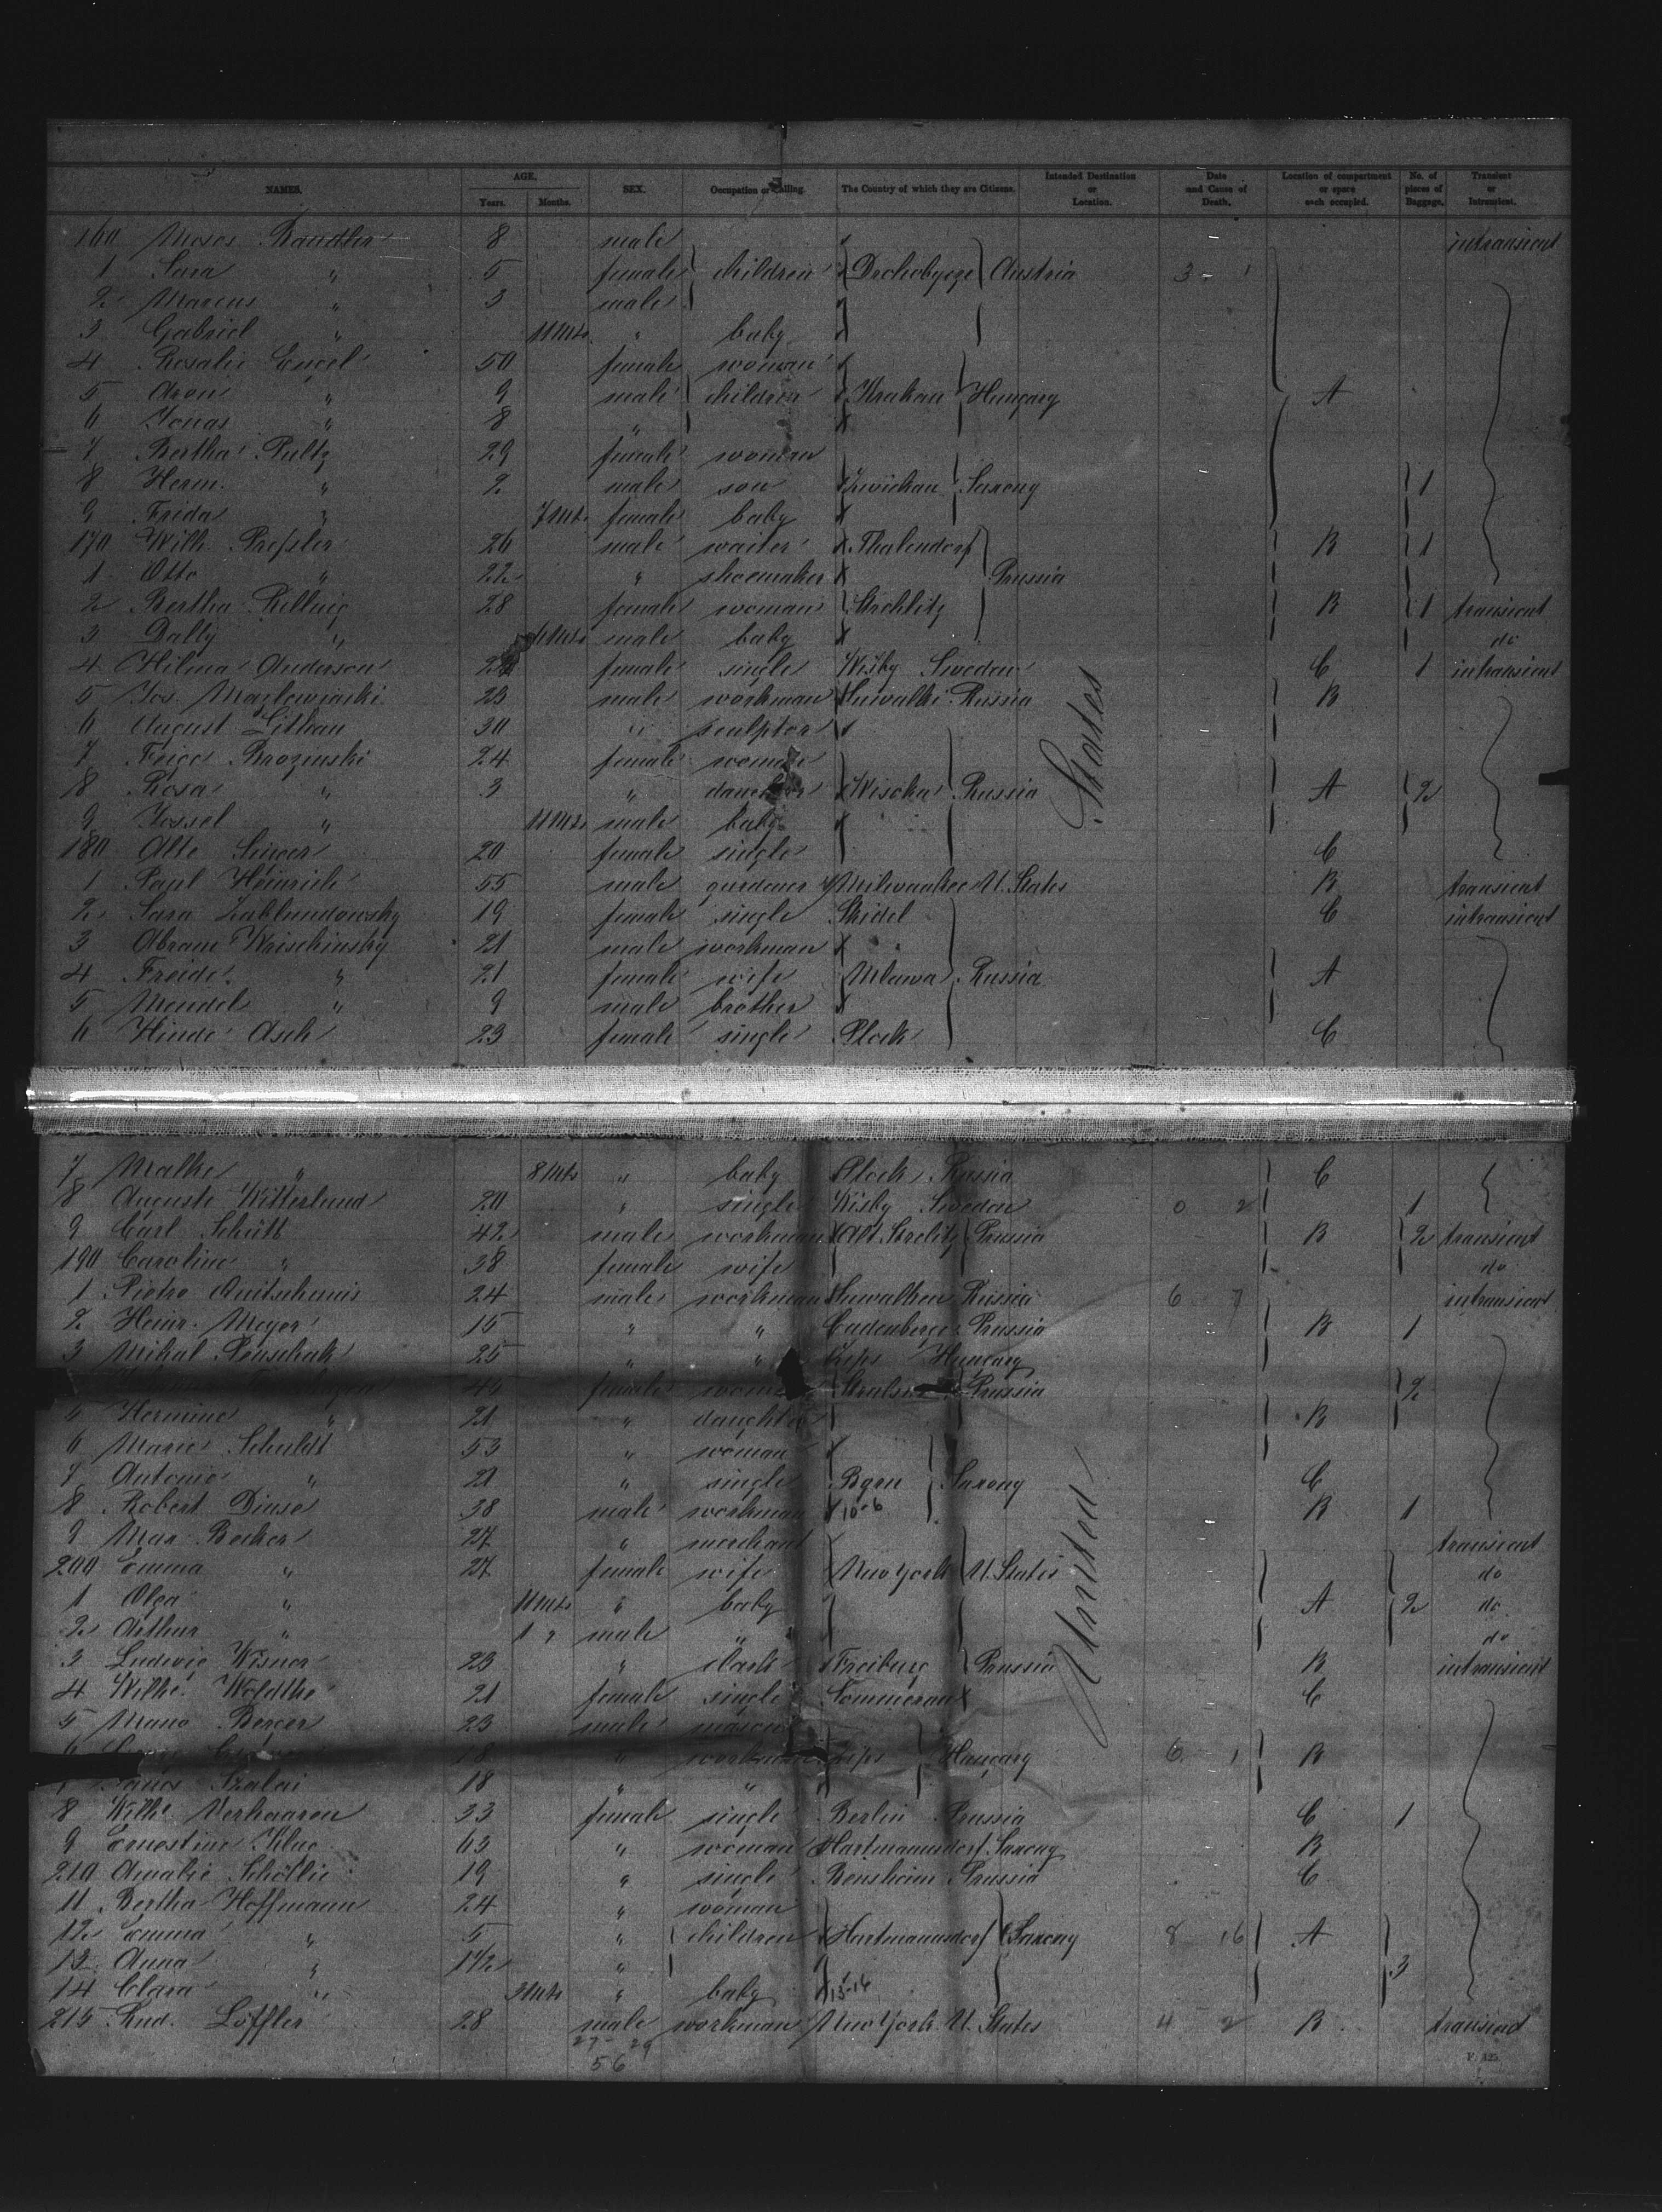 NAMES. AGE. SEX. Occupation or Calling. The Country of which they are Citizens. Intended Destination or Location. Date and Cause of Death. Location of compartment or space each occupied. No. of pieces of Baggage. Transient or Intransient.
Years. Months.
160 Moses Randler 8 male intransient
1 Sara " 5 female children Austria 3 - 1
2 Marcus " 3 male
3 Gabriel " 11 Mts. " baby
4 Rosalie Engel 50 female woman
5 Aron " 9 male children Krakau Hungary A
6 Jonas " 8 "
7 Bertha Pultz 29 female woman
8 Herm. " 2 male son Zwickau Saxony 1
9 Frida " 7 Mts. female baby
170 Wilh. Preßler 26 male waiter Thalendorf B 1
1 Otto " 22 " shoemaker Prussia
2 Bertha 28 female woman Strehlitz B 1 transient
3 Dally " Mts. male baby do
4 Hilma Anderson female single Wisby Sweden C 1 intransient
5 Jos. 23 male workman Suwalki Russia B
6 August 30 " sculptor
7 Feige Brozinski 24 female woman
8 Rosa " 3 " daughter Russia A 2
9 Jossel " 11 Mts. male baby
180 Alte Singer 20 female single C
1 Paul Heinrich 55 male gardener Milwaukee U. States B transient
2 Sara Zabludowsky 19 female single Skidel C intransient
3 Abram Wrischinsky 21 male workman
4 Freide " 21 female wife Mlawa Russia A
5 Mendel " 9 male brother
6 Hinde Asch 23 female single Plock C
7 Malke " 8 Mts " baby Plock Russia C
8 Auguste Witterlund 20 " single Wisby Sweden 0 2 1
9 Carl Schütt 42 male workman Alt Strelitz Prussia B 2 transient
190 Caroline " 38 female wife do
1 Pietro 24 male workman Suwalken Russia 6 7 intransient
2 Heinr. Meyer 15 " " Cadenberge Prussia B 1
3 Mihal 25 " " Zips Hungary
45 female woman Prussia 2
5 Hermine " 21 " daughter B
6 Marie Schuldt 53 " woman
7 Antonie " 21 " single Saxony C
8 Robert Dinse 38 male workman 10-6 B 1
9 Max Becker 27 " merchant transient
200 Emma " 27 female wife New York U. States do
1 Olga " 11 Mts " baby A 2 do
2 Arthur " 1 " male " do
3 Ludwig Wisner 23 " Freiburg Prussia B intransient
4 Wilhe. Woldthe 21 female single Sommerau C
5 Mano Berger 23 male mason
18 " workman Zips Hungary 6 1 B
7 Janos Szalai 18 " "
8 Wilhe. Verhaaren 33 female single Berlin Prussia C 1
9 Ernestine Kluge 63 " woman Hartmannsdorf Saxony B
210 Amalie Schöllig 19 " single Bensheim Prussia C
11 Bertha Hoffmann 24 " woman
12 Emma " 5 " children Hartmannsdorf Saxony 8 16 A
13 Anna " 1 1/2 " 3
14 Clara " 3 Mts " baby 13-16
215 Rud. Löffler 28 male workman New York U. States 4 2 B transient
27 29
56
United States